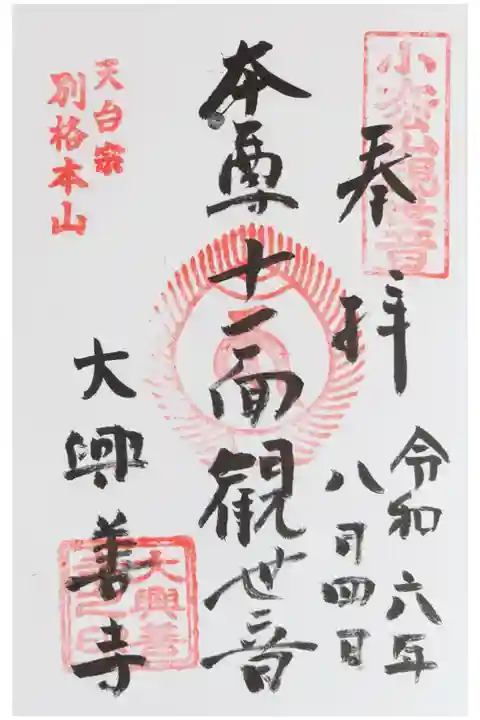 小松山観世音
奉拝
令和六年
八月四日
本尊十一面観世音
天台宗
別格本山
大興善寺
大興善
寺之印